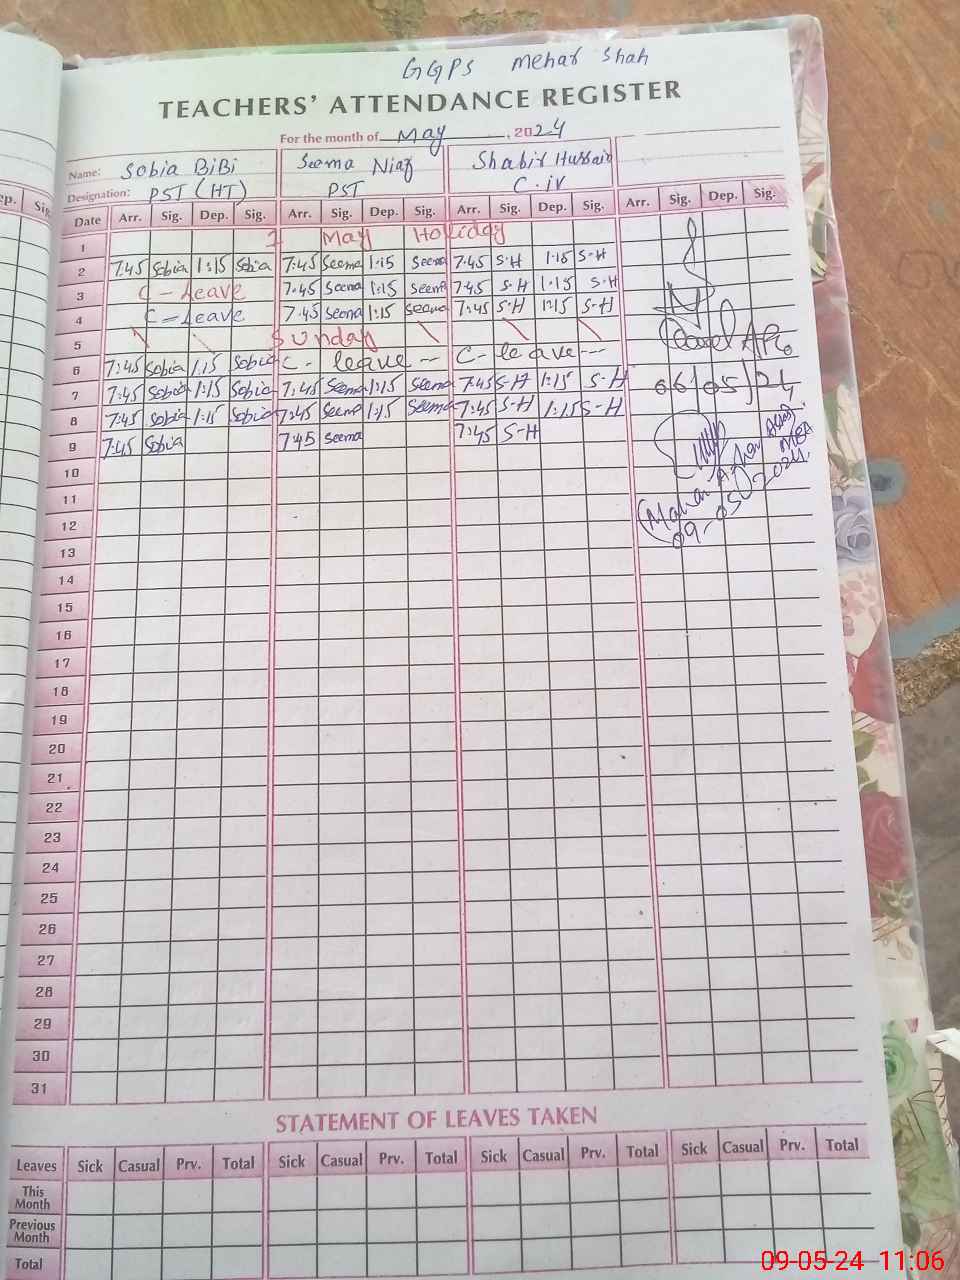 GGPS Mehar Shah
TEACHERS' ATTENDANCE REGISTER
For the month of May, 2024
Name: Sobia BiBi Seema Niaz Shabir Hussain
Designation: PST (HT) PST C.iv
ep. Sig.
Date Arr. Sig. Dep. Sig. Arr. Sig. Dep. Sig. Arr. Sig. Dep. Sig. Arr. Sig. Dep. Sig.
1 1 May Holiday
2 7:45 Sobia 1:15 Sobia 7:45 Seema 1:15 Seema 7:45 S-H 1:15 S-H
3 C-Leave 7:45 Seema 1:15 Seema 7:45 S-H 1:15 S-H
4 C-Leave 7:45 Seema 1:15 Seema 7:45 S-H 1:15 S-H
5 Sunday
6 7:45 Sobia 1:15 Sobia C-leave-- C-leave---
7 7:45 Sobia 1:15 Sobia 7:45 Seema 1:15 Seema 7:45 S-H 1:15 S-H
06/05/24
8 7:45 Sobia 1:15 Sobia 7:45 Seema 1:15 Seema 7:45 S-H 1:15 S-H
9 7:45 Sobia 7:45 Seema 7:45 S-H
MEA
09-05-2024
10
11
12
13
14
15
16
17
18
19
20
21
22
23
24
25
26
27
28
29
30
31
STATEMENT OF LEAVES TAKEN
Leaves Sick Casual Prv. Total Sick Casual Prv. Total Sick Casual Prv. Total Sick Casual Prv. Total
This
Month
Previous
Month
Total
09-05-24 11:06